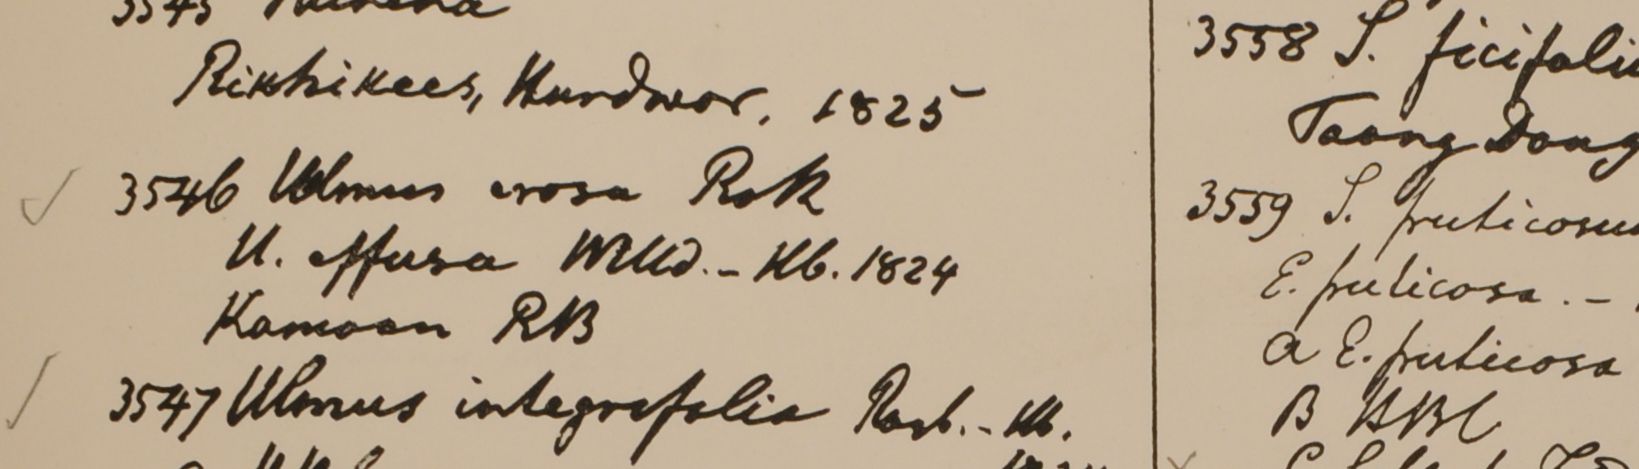 3545
Rikhikees, Hurdwar, 1825
3546 Ulmus erosa Roth
U. effusa Willd. - Hb. 1824
Kamoon RB
3547 Ulmus integrifolia Roxb. - Hb.
3558 S. ficifoli
Taong Dong
3559 S. fruticosu
E. fruticosa. -
a E. fruticosa
B HBC